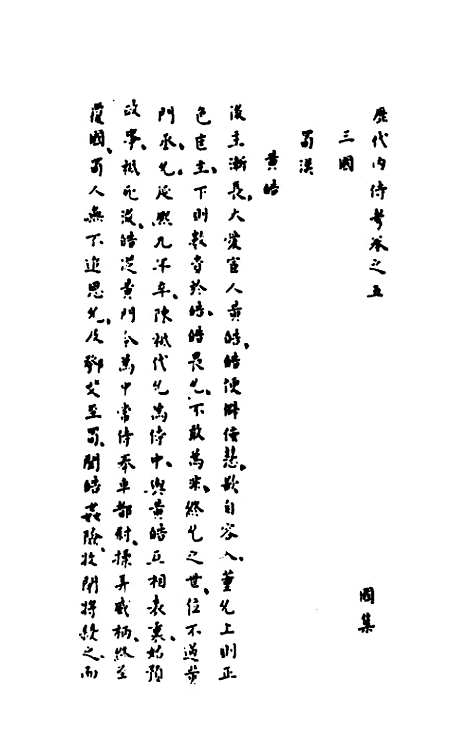 歷代內侍考卷之五
國集
三國
蜀漢
黃皓
後主漸長大愛宦人黃皓皓便辟佞慧欲自容入董允上則正
色匡主下則數責於皓皓畏允不敢為非終允之世位不過黃
門丞允延熙九年卒陳祗代允為侍中與黃皓互相表裏始預
政事祗死後皓從黃門令為中常侍奉車都尉操弄威柄終至
覆國蜀人無不追思允及鄧艾至蜀聞皓姦險收閉將殺之而